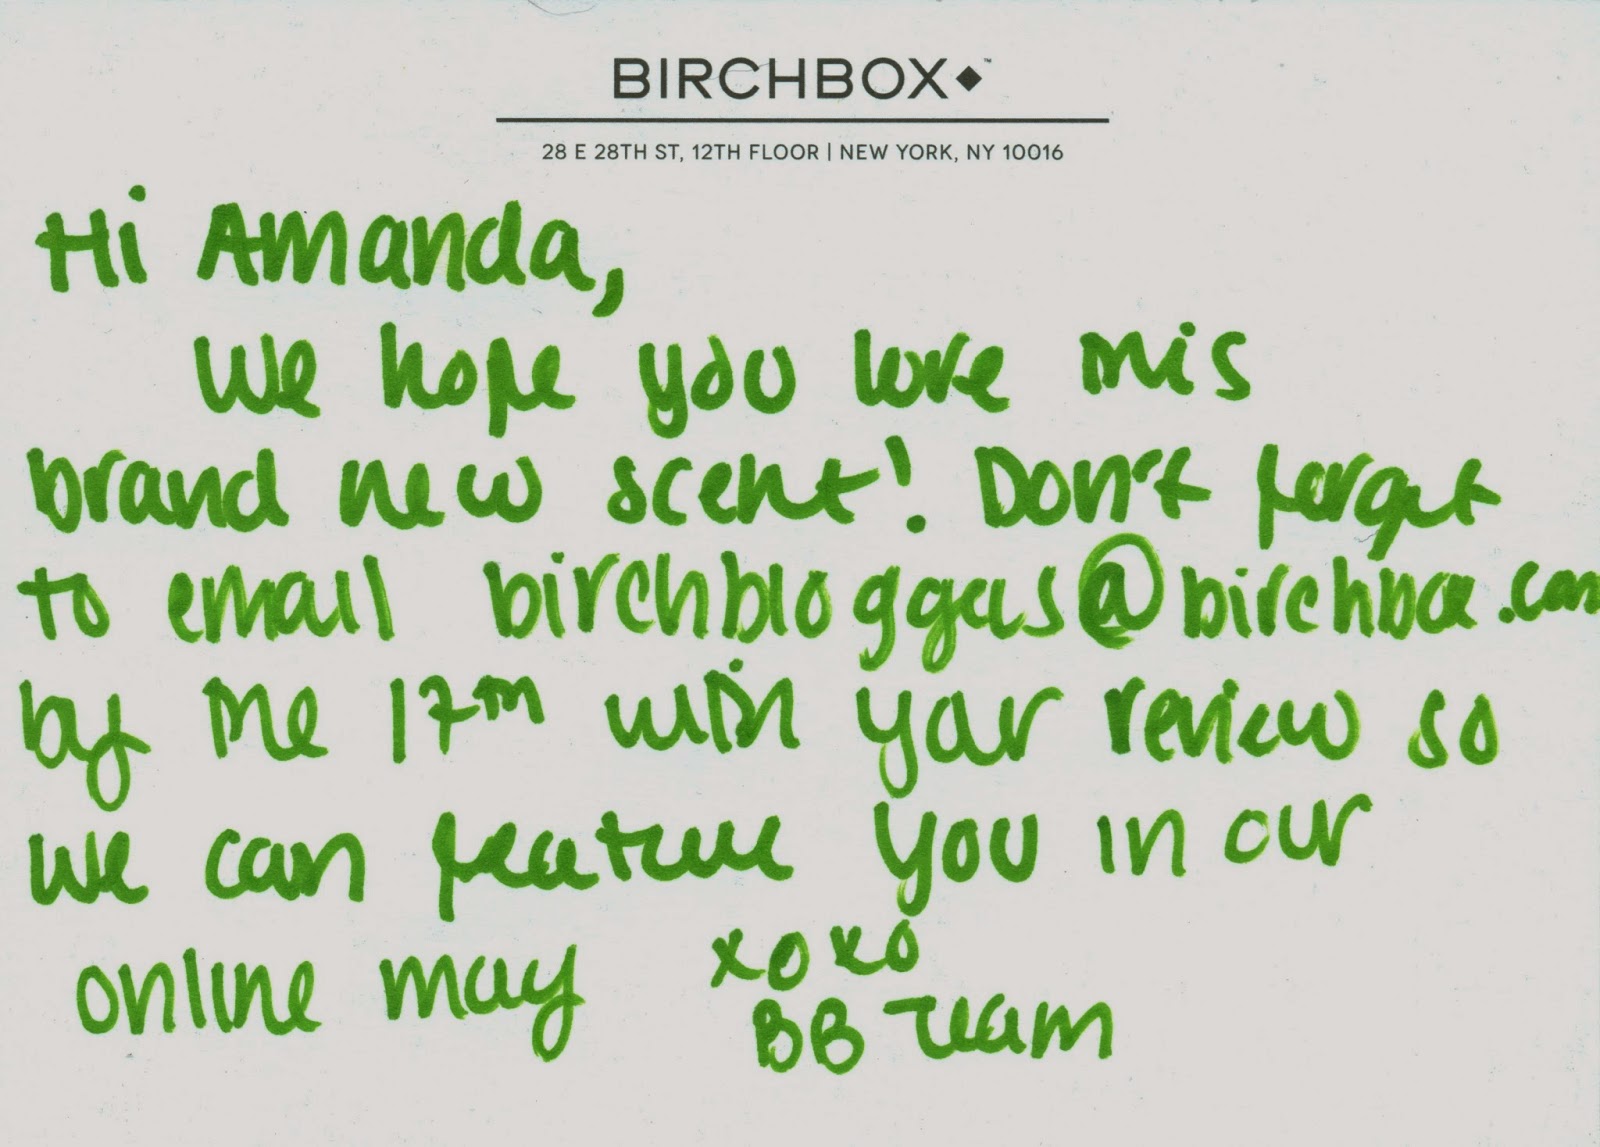 BIRCHBOX◆™
28 E 28TH ST, 12TH FLOOR | NEW YORK, NY 10016
Hi Amanda,
We hope you love this
brand new scent! Don't forget
to email birchbloggers@birchbox.com
by the 17th with your review so
we can feature you in our
online mag
xoxo
BB Team